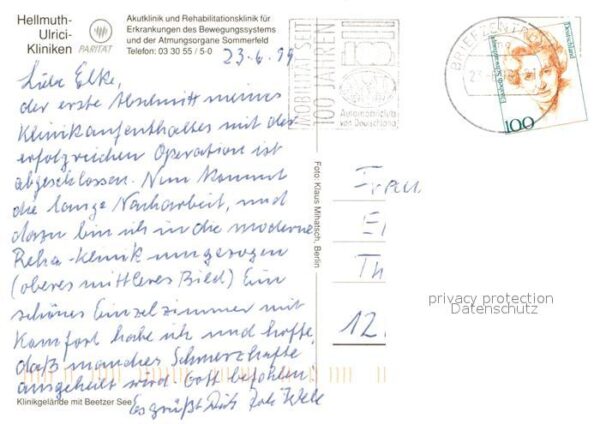 Hellmuth-
Ulrici-
Kliniken
PARITÄT
Akutklinik und Rehabilitationsklinik für
Erkrankungen des Bewegungssystems
und der Atmungsorgane Sommerfeld
Telefon: 03 30 55 / 5-0
23.6.99
Liebe Elke,
der erste Abschnitt meines
Klinikaufenthaltes mit der
erfolgreichen Operation ist
abgeschlossen. Nun kommt
die lange Nacharbeit, und
dazu bin ich in die moderne
Reha-Klinik umgezogen
(oberes mittleres Bild) Ein
schönes Einzelzimmer mit
Komfort habe ich und hoffe,
daß mancher Schmerzhafte
ausgeheilt wird. Gott befohlen
Es grüßt Dich
Klinikgelände mit Beetzer See
Foto: Klaus Mihatsch, Berlin
MOBILITÄT SEIT
100 JAHREN
Automobilclub
von Deutschland
BRIEFZENTRUM
Deutschland
100
Frau
El
Th
12
privacy protection
Datenschutz